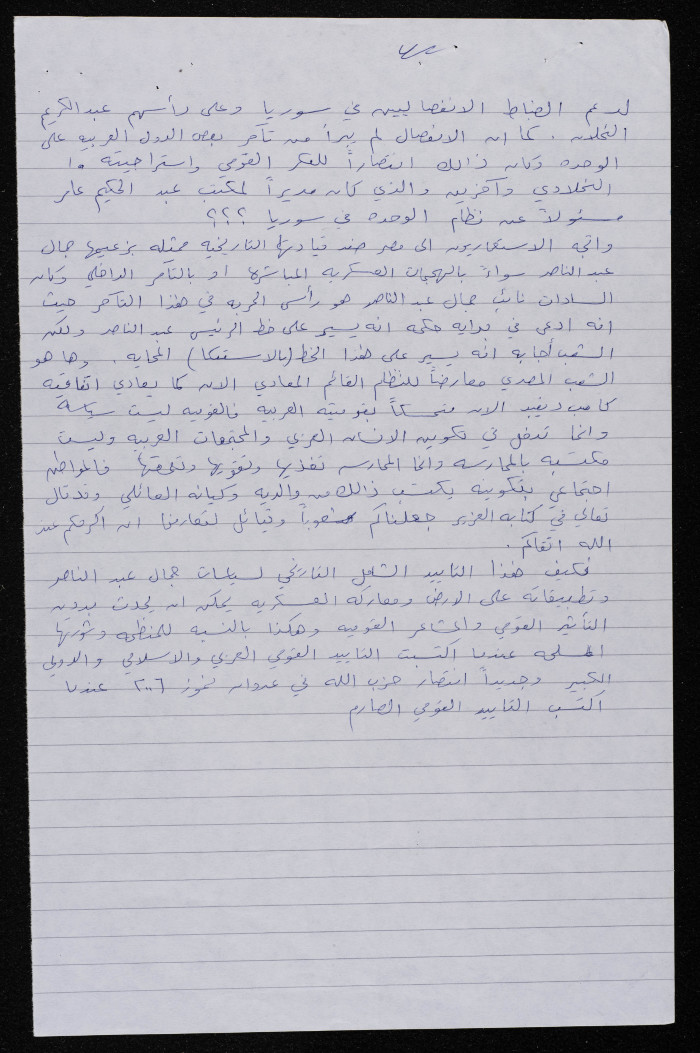 لدعم الضباط الانفصاليين في سوريا وعلى رأسهم عبدالكريم
النحلاوي. كما ان الانفصال لم يبرأ من تآمر بعض الدول العربيه على
الوحده وكان ذالك انتصاراً للفكر القومي واستراجيته
النحلاوي وآخرين والذي كان مديراً لمكتب عبد الحكيم عامر
مسئولاً عن نظام الوحده في سوريا ؟؟؟
واتجه الاستعماريون الى مصر ضد قيادتها التاريخيه ممثله بزعيمها جمال
عبد الناصر سواءً بالهجمات العسكريه المباشره او بالتآمر الداخلي وكان
السادات نائب جمال عبد الناصر هو رأس الحربه في هذا التآمر حيث
انه ادعى في بدايه حكمه انه يسير على خط الرئيس عبد الناصر ولكن
الشعب أجابه انه يسير على هذا الخط (بالاستيكا) المحايه. وها هو
الشعب المصري معارضاً للنظام القائم المعادي الان كما يعادي اتفاقية
كامب ديفيد الان متمسكاً بقوميته العربيه فالقوميه ليست سياسة
وانما تدخل في تكوين الانسان العربي والمجتمعات العربيه وليست
مكتسبه بالممارسه وانما الممارسه تغذيها وتقويها وتعمقها فالمواطن
اجتماعي بتكوينه يكتسب ذالك من والديه وكيانه العائلي وقد قال
تعالى في كتابه العزيز جعلناكم شعوباً وقبائل لتعارفوا ان اكرمكم عند
الله اتقاكم.
فكيف هذا التاييد الشامل التاريخي لسياسات جمال عبد الناصر
وتطبيقاته على الارض ومعاركه العسكريه يمكن ان يحدث بدون
التأثير القومي والمشاعر القوميه وهكذا بالنسبه للمنظمه وثورتها
المسلحه عندما اكتسبت التاييد القومي العربي والاسلامي والدولي
الكبير وجديداً انتصار حزب الله في عدوان تموز ٢٠٠٦ عندما
اكتسب التاييد القومي الصارم